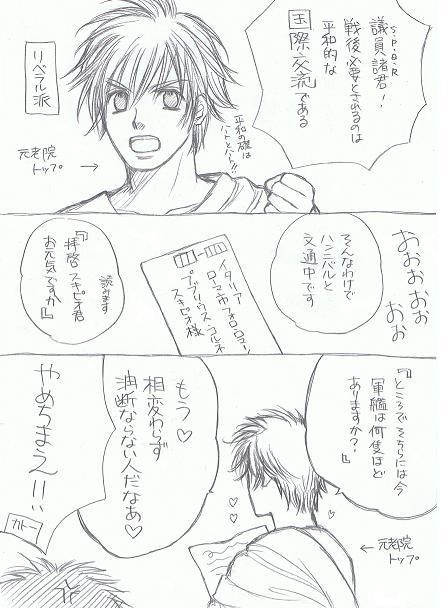 S.P.Q.R
議員諸君！
戦後必要とされるのは
平和的な
国際交流である
平和の礎は
ハートとハート！！
リベラル派
元老院
トップ
→
おおおおお
おお
そんなわけで
ハンニバルと
文通中です
イタリア
ローマ市フォロ・ロマーノ
プブリウス・コルネ
スキピオ様
読みます
『拝啓スキピオ君
お元気ですか』
『ところでそちらには今
軍艦は何隻ほど
ありますか？』
←元老院
トップ
もう♡
相変わらず
油断ならない人だなあ♡
やめちまえ！！
カトー